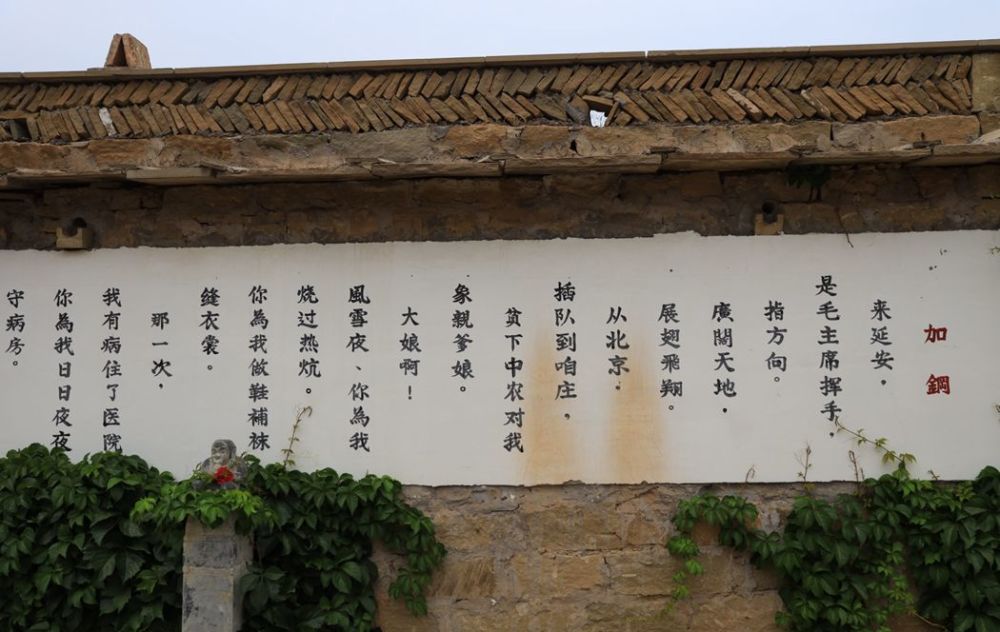 加鋼
来延安，
是毛主席挥手，
指方向。
廣闊天地，
展翅飛翔。
从北京，
插队到咱庄，
贫下中农对我
象親爹娘。
大娘啊！
風雪夜、你為我
烧过热炕。
你為我做鞋補袜
缝衣裳。
那一次，
我有病住了医院
你為我日日夜夜
守病房。